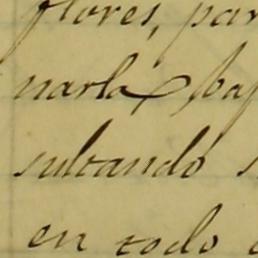 flores, par
narla baj
sultando s
en todo